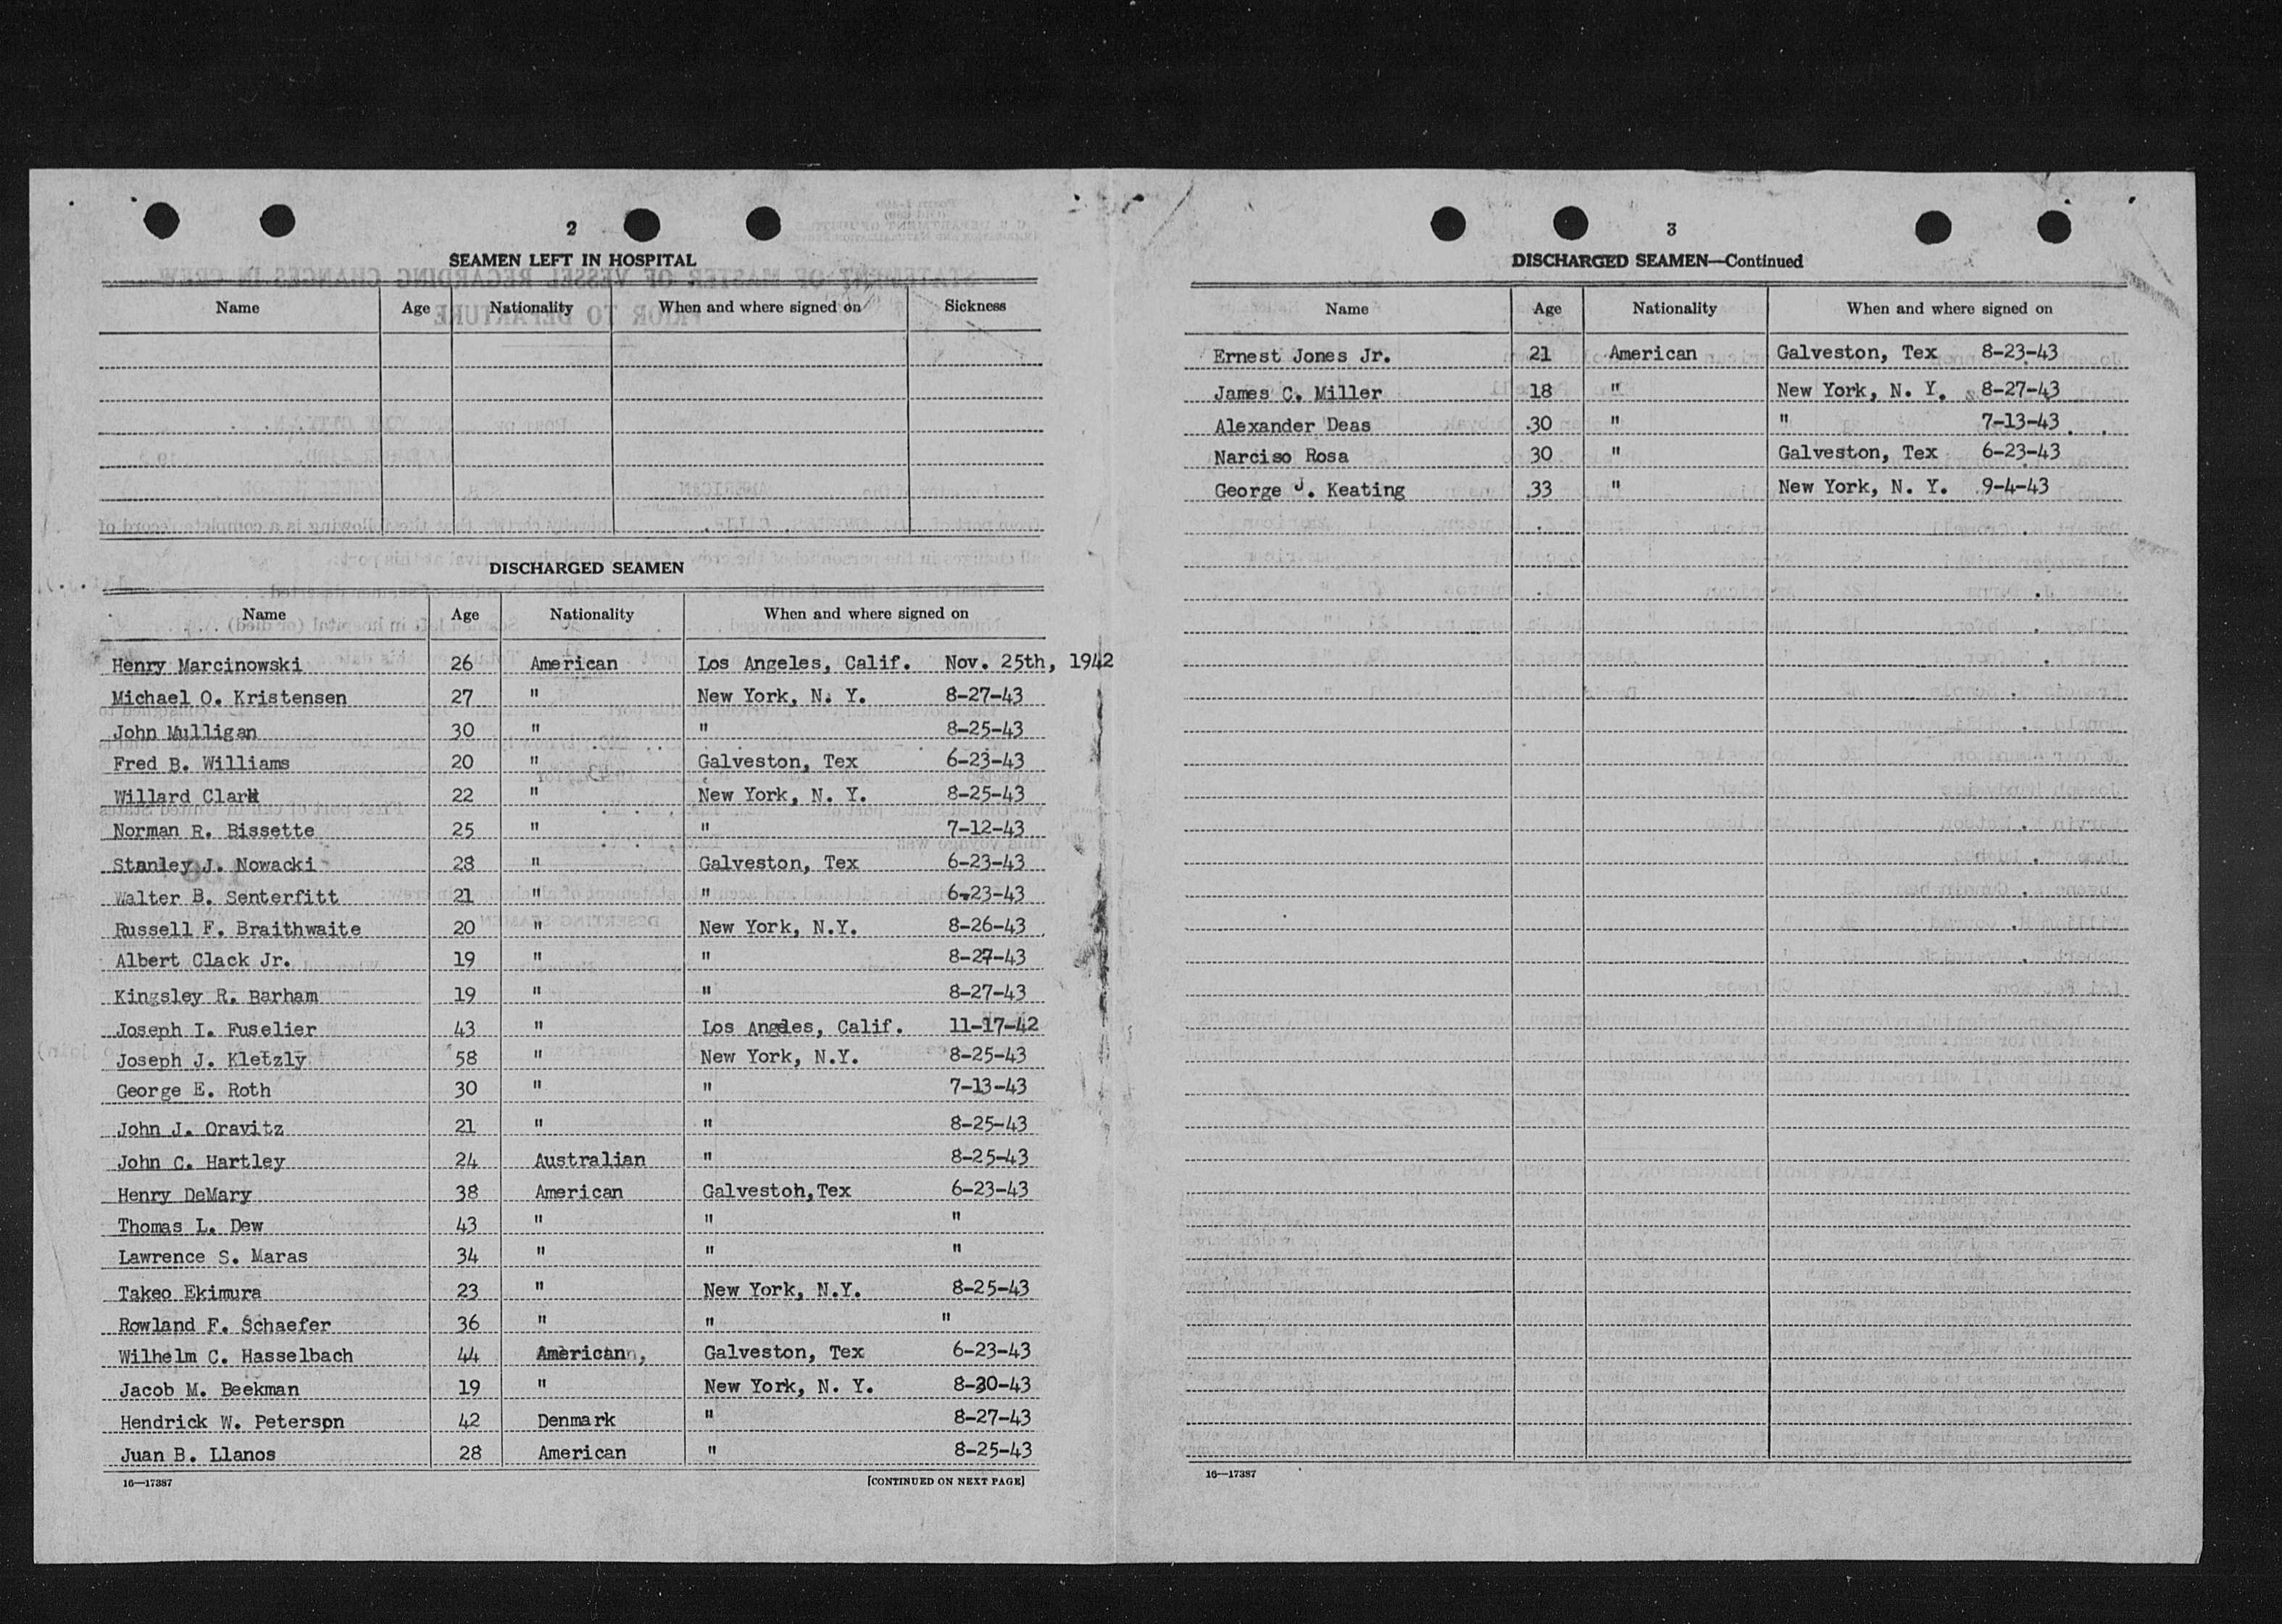 2
SEAMEN LEFT IN HOSPITAL
Name Age Nationality When and where signed on Sickness
DISCHARGED SEAMEN
Name Age Nationality When and where signed on
Henry Marcinowski 26 American Los Angeles, Calif. Nov. 25th, 1942
Michael O. Kristensen 27 " New York, N. Y. 8-27-43
John Mulligan 30 " " 8-25-43
Fred B. Williams 20 " Galveston, Tex 6-23-43
Willard Clark 22 " New York, N. Y. 8-25-43
Norman R. Bissette 25 " " 7-12-43
Stanley J. Nowacki 28 " Galveston, Tex 6-23-43
Walter B. Senterfitt 21 " " 6-23-43
Russell F. Braithwaite 20 " New York, N.Y. 8-26-43
Albert Clack Jr. 19 " " 8-27-43
Kingsley R. Barham 19 " " 8-27-43
Joseph I. Fuselier 43 " Los Angeles, Calif. 11-17-42
Joseph J. Kletzly 58 " New York, N.Y. 8-25-43
George E. Roth 30 " " 7-13-43
John J. Oravitz 21 " " 8-25-43
John C. Hartley 24 Australian " 8-25-43
Henry DeMary 38 American Galveston,Tex 6-23-43
Thomas L. Dew 43 " " "
Lawrence S. Maras 34 " " "
Takeo Ekimura 23 " New York, N.Y. 8-25-43
Rowland F. Schaefer 36 " " "
Wilhelm C. Hasselbach 44 American, Galveston, Tex 6-23-43
Jacob M. Beekman 19 " New York, N. Y. 8-30-43
Hendrick W. Peterspn 42 Denmark " 8-27-43
Juan B. Llanos 28 American " 8-25-43
16—17387 [CONTINUED ON NEXT PAGE]
3
DISCHARGED SEAMEN—Continued
Name Age Nationality When and where signed on
Ernest Jones Jr. 21 American Galveston, Tex 8-23-43
James C. Miller 18 " New York, N. Y. 8-27-43
Alexander Deas 30 " " 7-13-43
Narciso Rosa 30 " Galveston, Tex 6-23-43
George J. Keating 33 " New York, N. Y. 9-4-43
16—17387